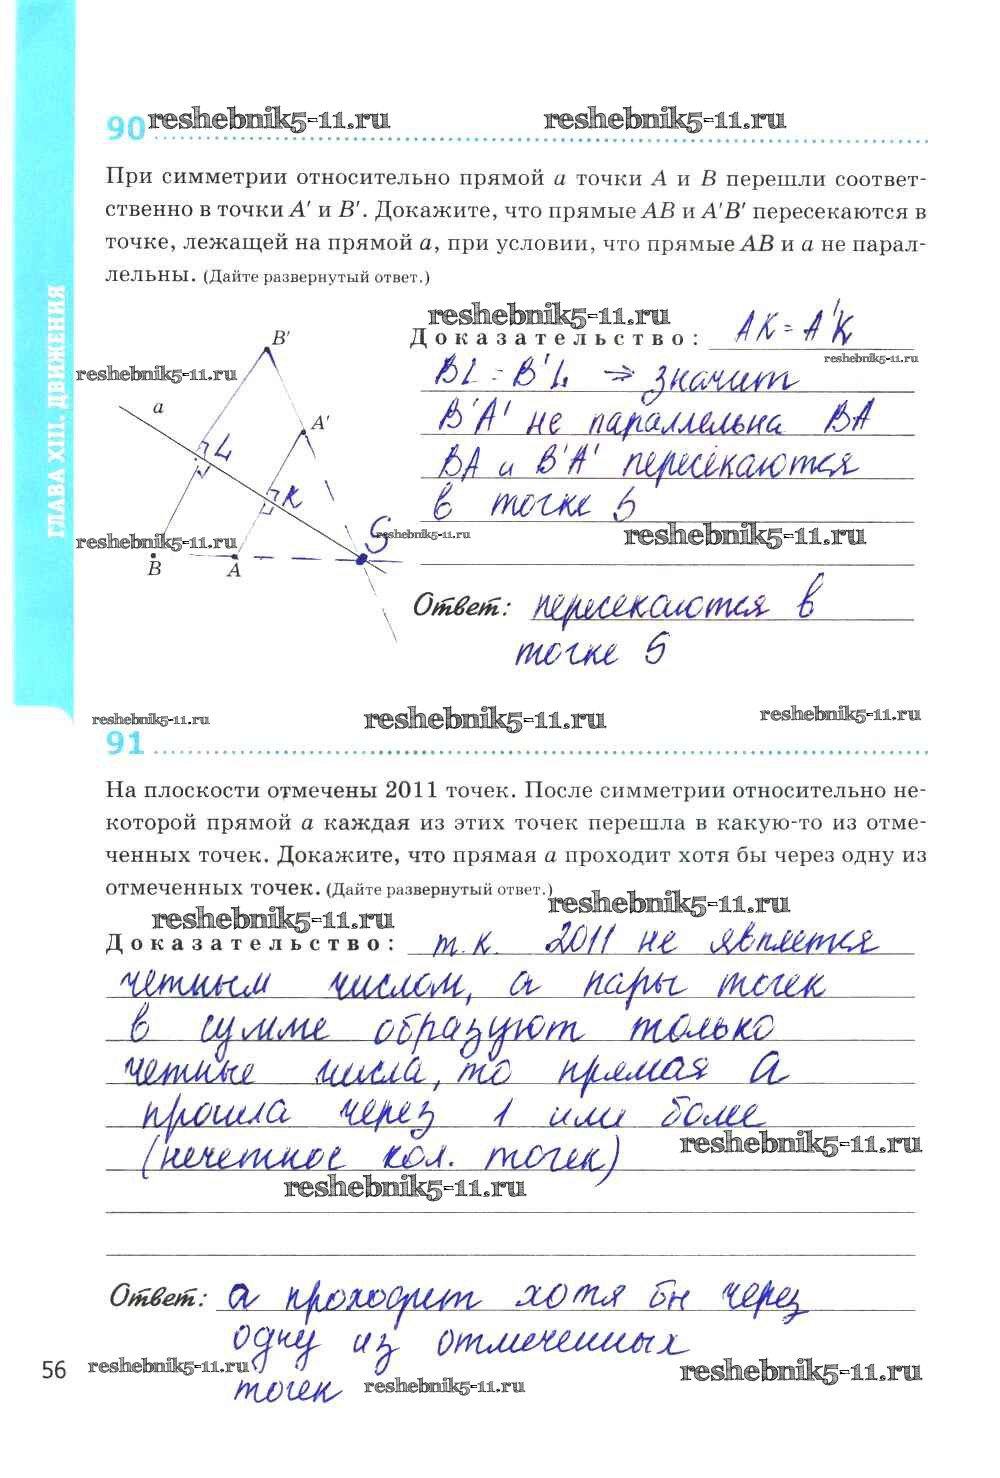 ГЛАВА XIII. ДВИЖЕНИЯ
90 reshebnik5-11.ru reshebnik5-11.ru
При симметрии относительно прямой a точки A и B перешли соответ-
ственно в точки A′ и B′. Докажите, что прямые AB и A′B′ пересекаются в
точке, лежащей на прямой a, при условии, что прямые AB и a не парал-
лельны. (Дайте развернутый ответ.)
reshebnik5-11.ru
Доказательство: AK = A'K
reshebnik5-11.ru
BL = B'L ⇒ значит
B'A' не параллельна BA
BA и B'A' пересекаются
в точке S
reshebnik5-11.ru
B′
reshebnik5-11.ru
a
A′
L
K
S
reshebnik5-11.ru
reshebnik5-11.ru
B A
Ответ: пересекаются в
точке S
reshebnik5-11.ru reshebnik5-11.ru reshebnik5-11.ru
91
На плоскости отмечены 2011 точек. После симметрии относительно не-
которой прямой a каждая из этих точек перешла в какую-то из отме-
ченных точек. Докажите, что прямая a проходит хотя бы через одну из
отмеченных точек. (Дайте развернутый ответ.)
reshebnik5-11.ru reshebnik5-11.ru
Доказательство: т.к. 2011 не является
четным числом, а пары точек
в сумме образуют только
четные числа, то прямая a
прошла через 1 или более
(нечетное кол. точек)
reshebnik5-11.ru
reshebnik5-11.ru
Ответ: a проходит хотя бы через
одну из отмеченных
точек
56 reshebnik5-11.ru reshebnik5-11.ru reshebnik5-11.ru